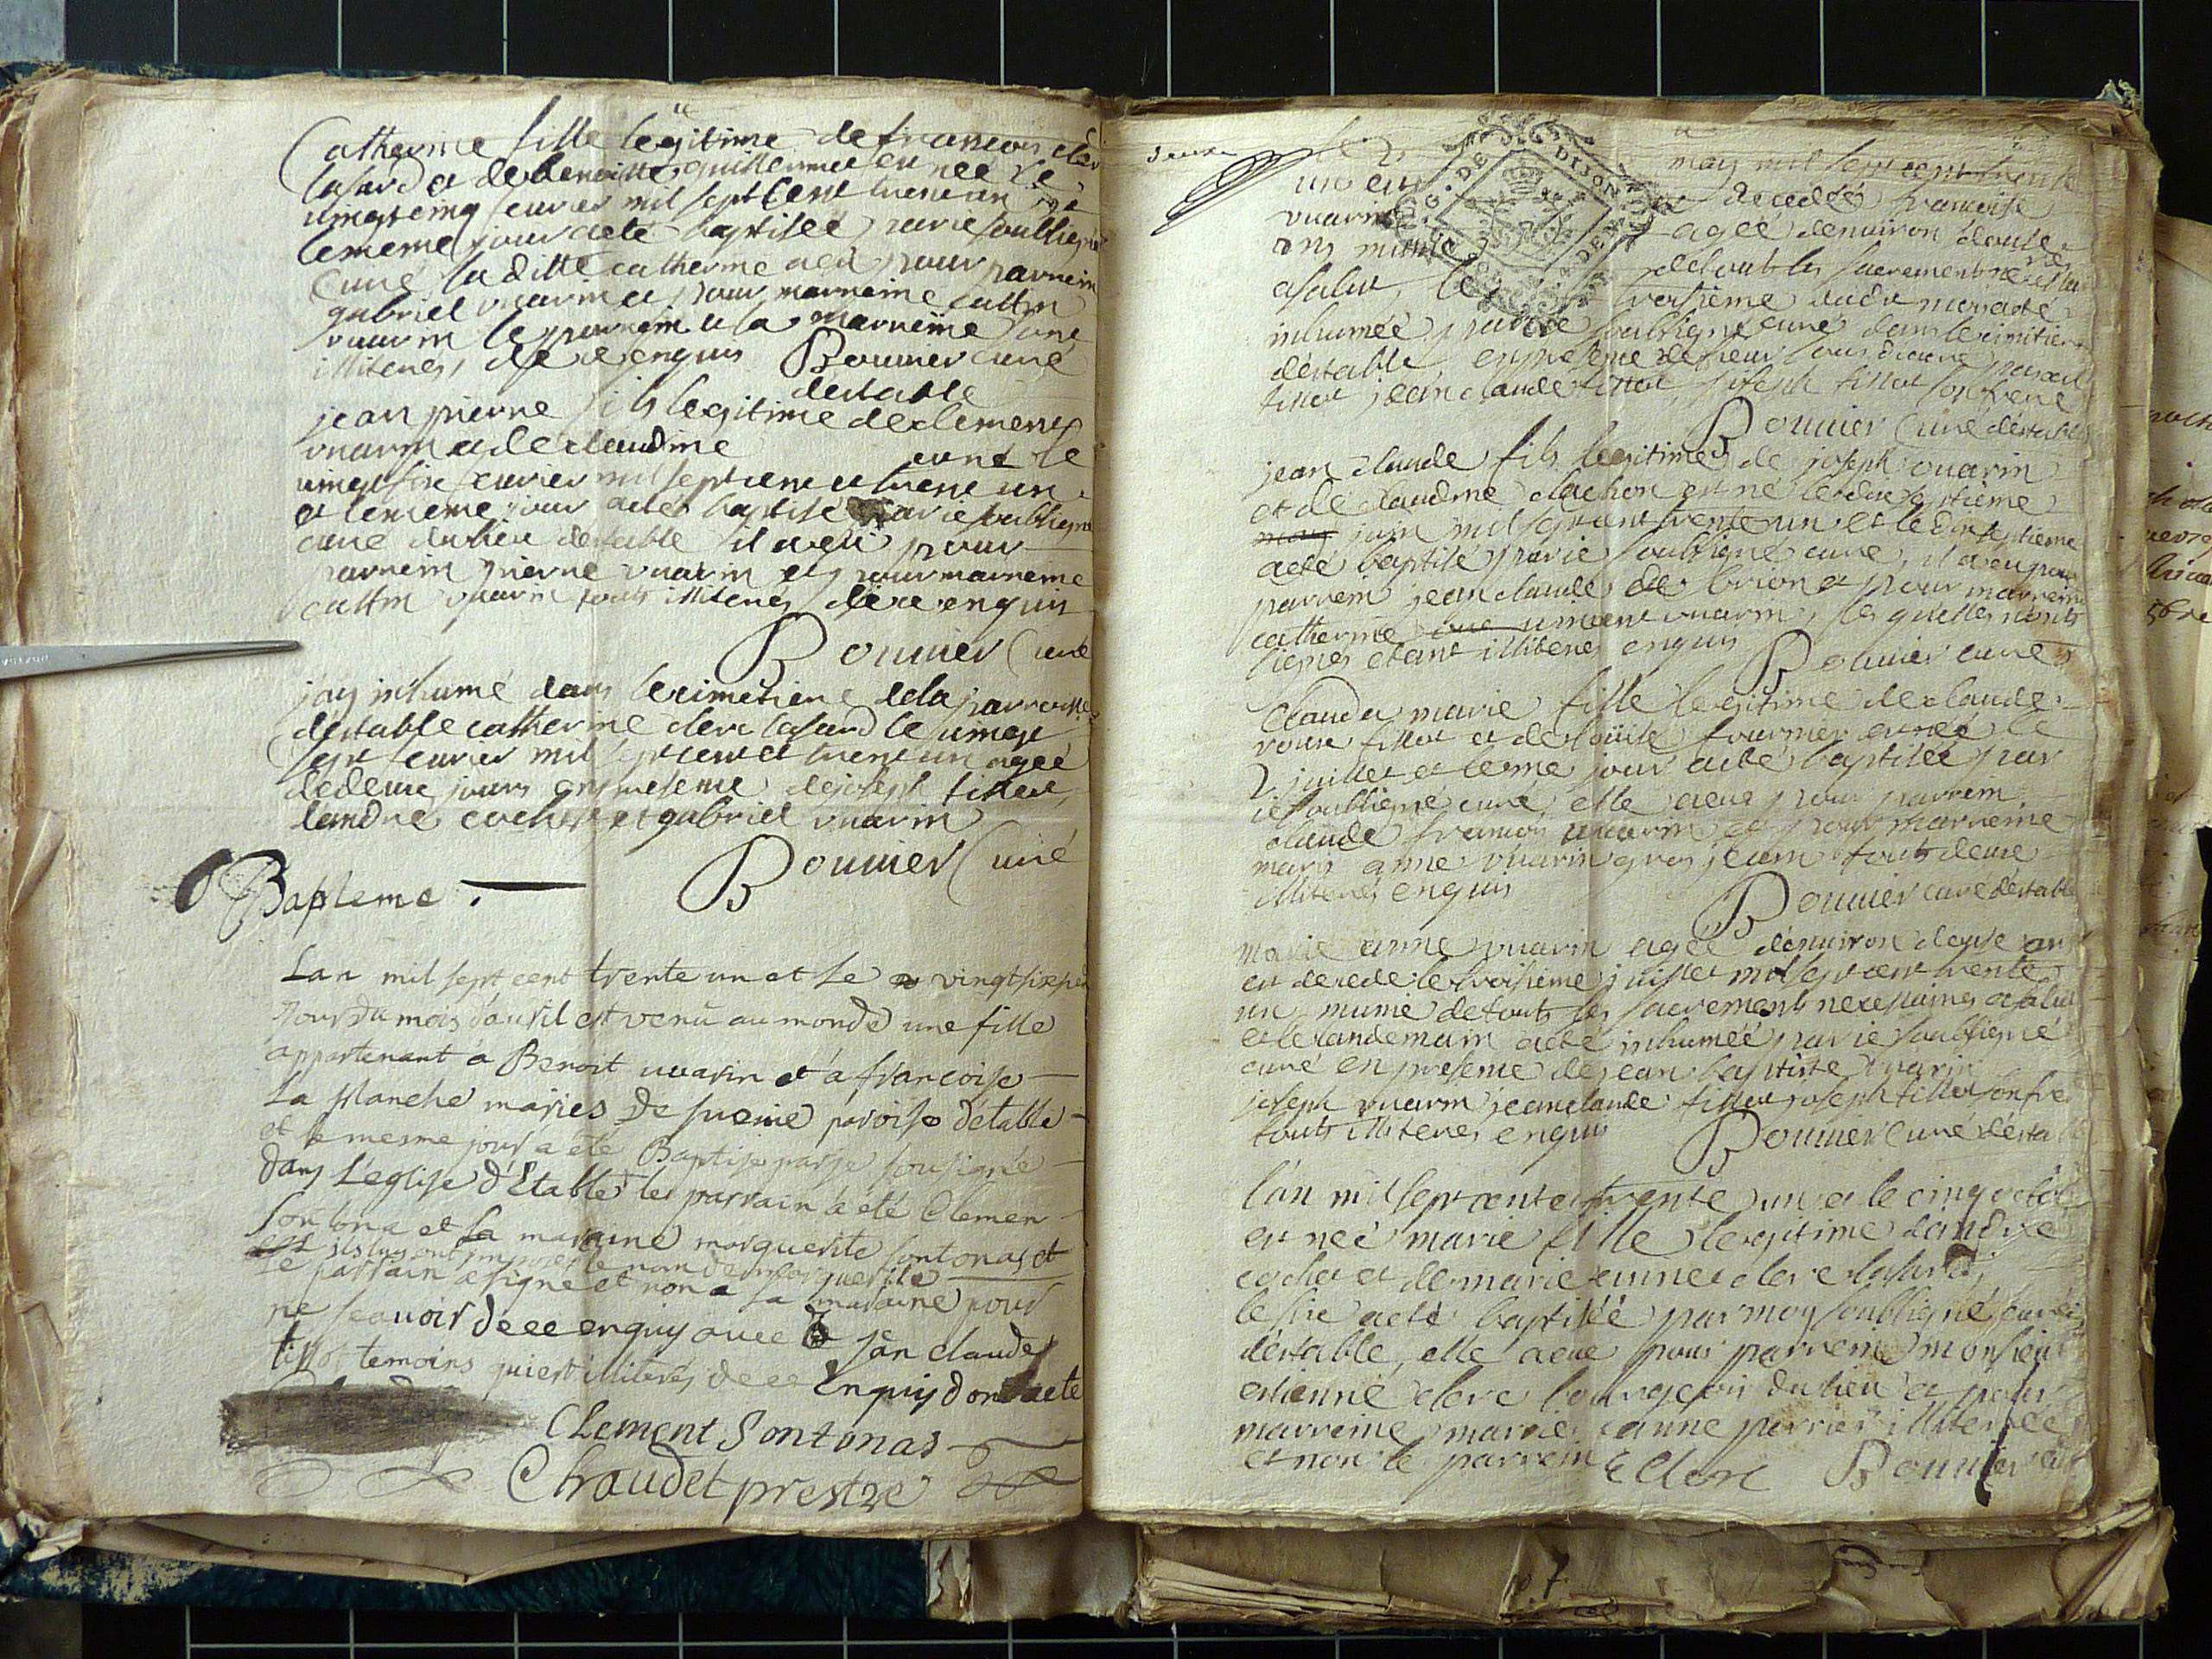 Catherine fille legitime de francois clerc
lasard et de benoitte guillermet est neé le
vingtcinq feurier mil sept cent trent un et
lememe jour aeté baptiseé par ie soubsigné
curé la ditte catherine aeü pour parrein
gabriel vuarin et pour marreine cattin
vuarin le parrein et la marreine sont
illiterés, de ce enquis Bouuier curé
destable
jean pierre fils legitime de clement
vuarin et de claudine est né le
vingtsix feurier mil sept cent et trent un
et lememe jour aeté baptisé par ie soubsigné
curé du lieu destable il aeü pour
parrein pierre vuarin et pour marreine
cattin vuarin touts illiterés de ce enquis
Bouuier curé
jay inhumé dans le cimetiere de la parroisse
destable catherine clerc lasard le vingt
sept feurier mil sept cent et trent un ageé
de deux jours en presence de joseph tissot,
landre cochet et gabriel vuarin
Bouuier curé
Bapteme .
Lan mil sept cent trente un et le vingtsixp
Jour du mois dauril est venü au monde une fille
appartenant à Benoit uuarin et à francoise
La planche mariés de pareisse d'etable
et le mesme jour a été Baptise par je sousigné
dans L'eglise d'Etable les parrain a été Clemen
Sontona et la maraine marguerite sontonas et
ils luy ont imposé le nom de marguerite
le parrain a signé et non a la maraine pour
ne scauoir de ce enquis avec jan claude
tissot temoins qui est illiterés de ce Enquis dont acte
Clement Sontonas
Chaudet prestre
may mil sept cent trente
un est decedeé francoise
vuarin ageé denuiron douse
ans munie de touts les sacrements
asalut, le troisieme dudit mois aeté
inhumeé par ie soubsigné curé dans le cimitiere
destable, en presence de
tissot jean claude tissot, joseph tissot son frere
Bouuier curé destable
jean claude fils legitime de joseph vuarin
et de claudine clachon est né le dix septieme
may juin mil sept cent trente un et le dix septieme
aeté baptisé par ie soubsigné curé, il a eu pour
parrein jean claude de brion et pour marreine
catherine vincent vuarin, les quelles nonts
signés etant illiterés enquis Bouuier curé
Clauda marie fille legitime de claude
roux tissot et de loüise fournier est neé le
2 juillet et leme jour aeté baptiseé par
ie soubsigné curé, elle aeue pour parrein
claude francois vuarin et pour marreine
marie anne vuarin gros jean touts deux
illiterés enquis
Bouuier curé destable
marie anne vuarin ageé denuiron douse an
est decedeé le troisieme juillet mil sept cent trente
un munie de touts les sacrements necessaires asalut
et le landemain aeté inhumeé par ie soubsigné
curé en presence de jean baptiste vuarin
joseph vuarin jean claude tissot joseph tissot son frere
touts illiterés enquis Bouuier curé desta
l'an mil sept cent et trente un et le cinq octob
est neé marie fille legitime dandre
cochet et de marie anne clerc lasard,
le six aeté baptiseé par moy soubsigné curé
destable, elle aeue pour parrein monsieur
estienne clerc bourgeois du lieu et pour
marreine marie anne perrier illitereé
et non le parrein E Clerc Bouuier curé